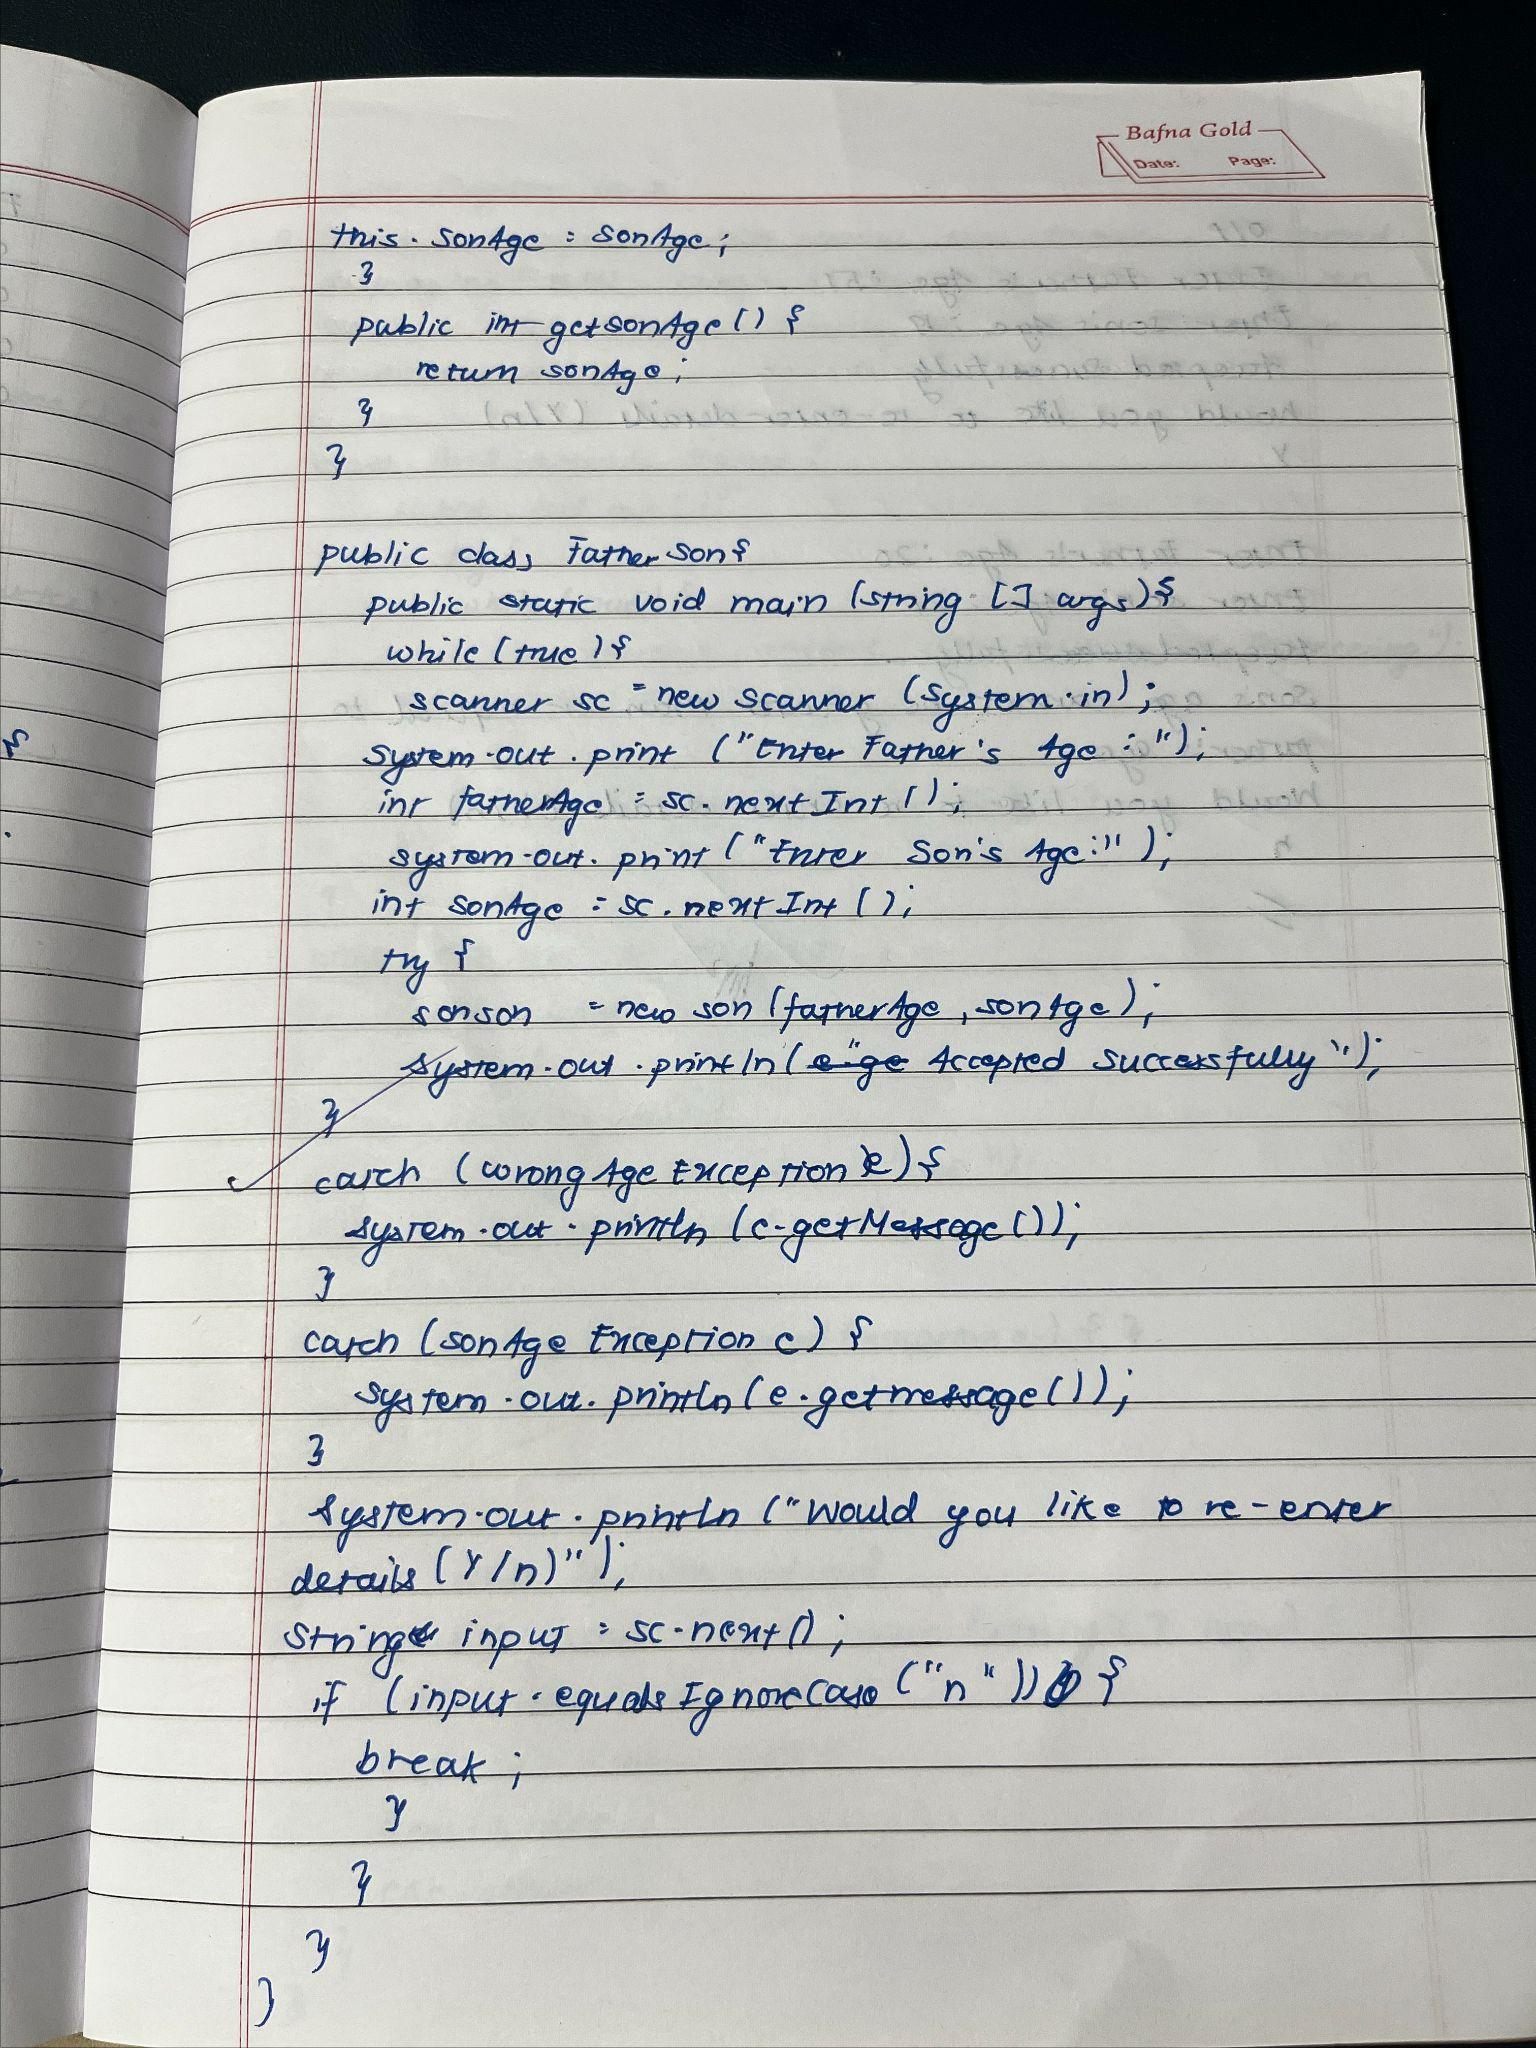 Bafna Gold
Date: Page:
this. SonAge = SonAge;
}
public int getsonAge() {
return sonAge;
}
}
public class FatherSon{
public static void main (string [] args){
while (true) {
scanner sc = new scanner (system.in);
system.out.print ("Enter Father's Age :");
int fatherAge = sc.nextInt();
system.out.print ("Enter Son's Age:");
int sonAge = sc.nextInt ();
try {
sonson = new son (fatherAge, sonAge);
system.out.println(" Accepted successfully");
}
catch (wrongAge Exception e) {
system.out.println (e.getMessage());
}
catch (sonAge Exception e) {
system.out.println(e.getmessage());
}
system.out.println ("Would you like to re-enter
details (Y/n)");
String input = sc.next();
if (input.equalsIgnoreCase ("n")) {
break;
}
}
}
}